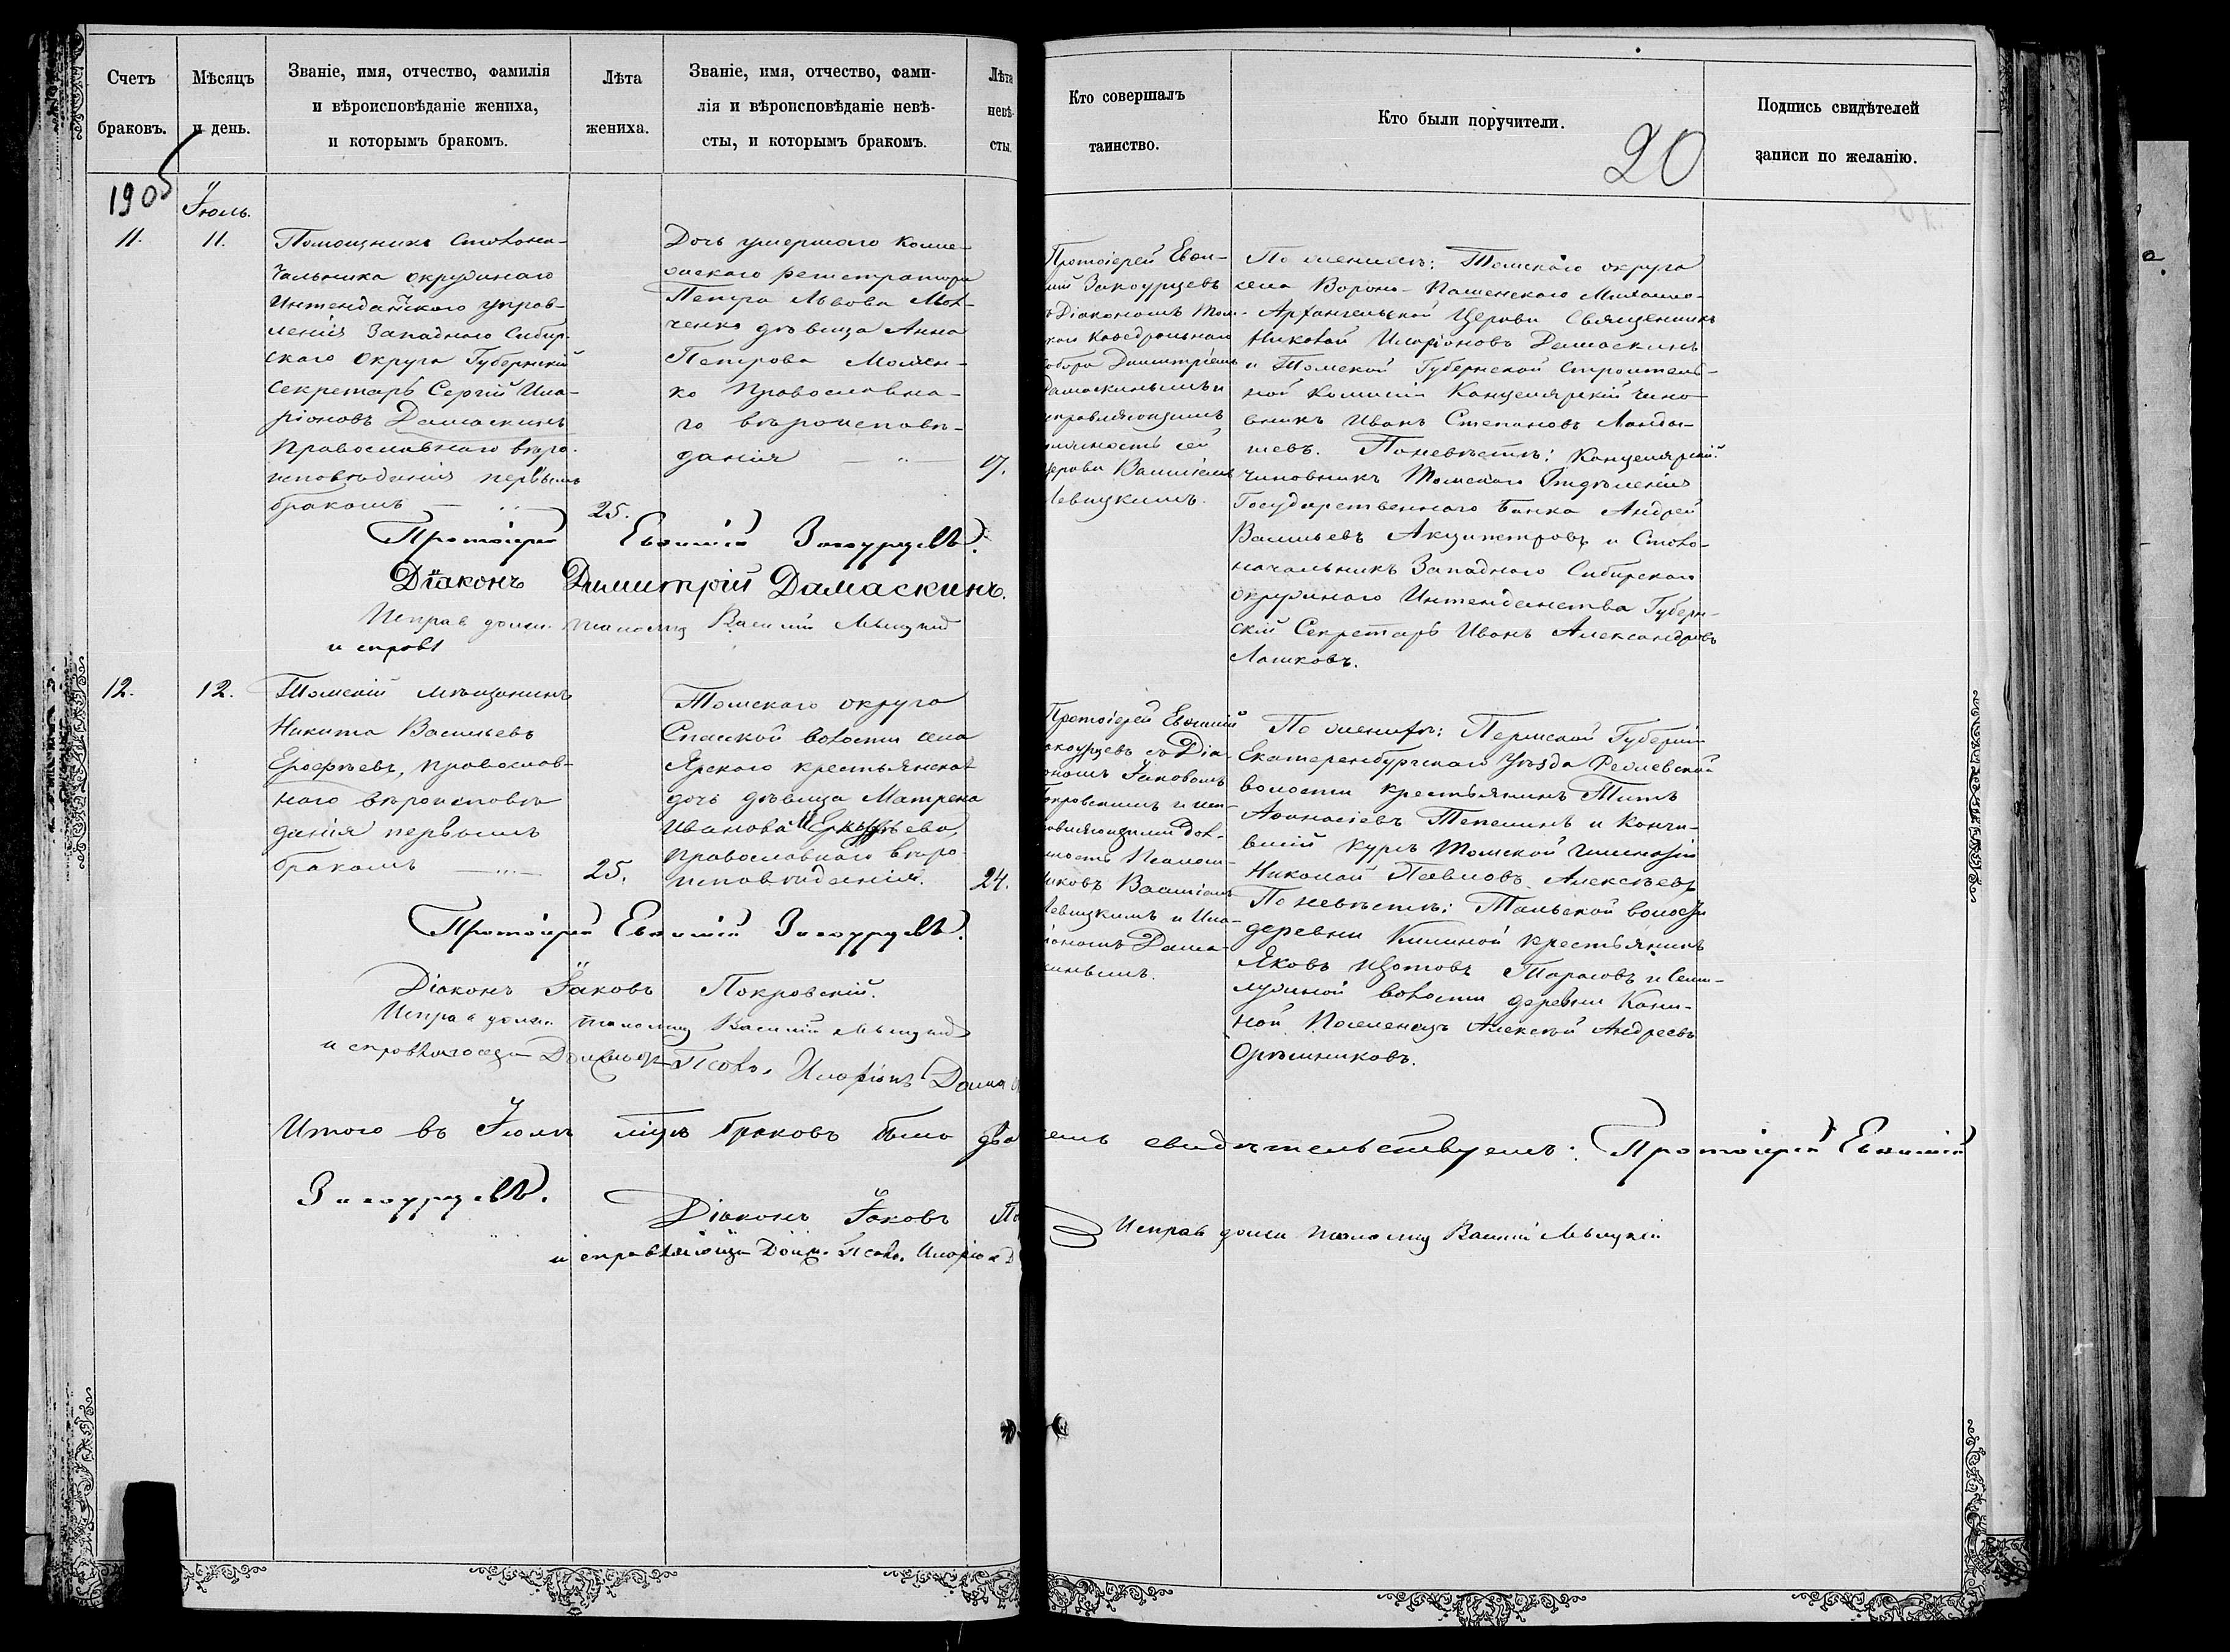 Счетъ
браковъ.
Мѣсяцъ
и день.
Званіе, имя, отчество, фамилія
и вѣроисповѣданіе жениха,
и которымъ бракомъ.
Лѣта
жениха.
Званіе, имя, отчество, фами-
лія и вѣроисповѣданіе невѣ-
сты, и которымъ бракомъ.
Лѣта
невѣ-
сты.
Кто совершалъ
таинство.
Кто были поручители.
20
Подпись свидѣтелей
записи по желанію.
1905
Іюль.
11.
11.
Помощникъ Столона-
чальника окружнаго
Интендантскаго управ-
ленія Западнаго Сибир-
скаго Округа Губернскій
Секретарь Сергій Ила-
ріоновъ Дамаскинъ
Православнаго вѣро-
исповѣданія первымъ
бракомъ
25.
Дочь умершаго Колле-
жскаго регистратора
Петра Львова
дѣвица Анна
Петрова
Православна-
го вѣроисповѣ-
данія
17.
Протоіерей Евѳи-
мій Закоурцевъ
съ Діакономъ Том-
ской Каѳедральнаго
Собора Димитріемъ
Дамаскинымъ и
исправляющимъ
должность сей
церкви Василіемъ
Левицкимъ.
По женихѣ: Томскаго округа
села Вороно-Пашенскаго Михаило-
Архангельской Церкви Священникъ
Николай Иларіоновъ Дамаскинъ
и Томской Губернской Строитель-
ной Комисіи Канцелярскій чино-
вникъ Иванъ Степановъ Ланды-
шевъ. По невѣстѣ: Канцелярскій
чиновникъ Томскаго Отдѣленія
Государственнаго Банка Андрей
Васильевъ Акципетровъ и Столо-
начальникъ Западнаго Сибирскаго
окружнаго Интендантства Губерн-
скій Секретарь Иванъ Александровъ
Лашковъ.
Протоіерей Евѳимій Закоурцевъ.
Діаконъ Димитрій Дамаскинъ.
Исправ должн псаломщ Василій Левицкій
и справл
12.
12.
Томскій мѣщанинъ
Никита Васильевъ
Ерофѣевъ, православ-
наго вѣроисповѣ
данія первымъ
бракомъ
25.
Томскаго округа
Спасской волости села
Ярскаго крестьянская
дочь дѣвица Матрена
Иванова
православнаго вѣро
исповѣданія.
24.
Протоіерей Евѳимій
Закоурцевъ съ Діа-
кономъ Іаковомъ
Покровскимъ и исп-
равляющими дол-
жность Псалом-
щиковъ Василіемъ
Левицкимъ и Ила-
ріономъ Дама-
скинымъ.
По женихѣ: Пермской Губерніи
Екатеренбургскаго Уѣзда
волости крестьянинъ Титъ
Аѳанасіевъ Тепелинъ и Кончи-
вшій курсъ Томской гимназіи
Николай Павловъ Алексѣевъ
По невѣстѣ: Тальской волости
деревни Килиной крестьянинъ
Яковъ Изотовъ Тарасовъ и Семи-
лужной волости деревни Кани-
ной Поселенецъ Алексѣй Андреевъ
Орѣшниковъ.
Протоіерей Евѳимій Закоурцевъ.
Діаконъ Іаковъ Покровскій.
Исправ должн псаломщ Василій Левицкій
и справляющ Должност Псалом. Иларіонъ Дама
Итого въ Іюлѣ мцѣ браковъ было два
емъ свидѣтельствуемъ: Протоіерей Евѳимій
Закоурцевъ.
Діаконъ Іаковъ По
Исправ должн псаломщ Василій Левицкій
и справляющ Долж. Псалм. Иларіон Д